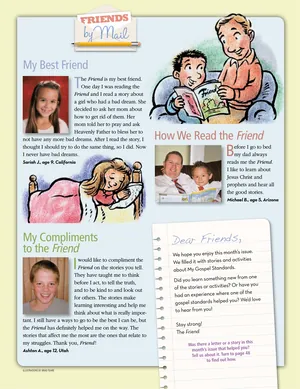 FRIENDS
by Mail
My Best Friend
The Friend is my best friend.
One day I was reading the
Friend and I read a story about
a girl who had a bad dream. She
decided to ask her mom about
how to get rid of them. Her
mom told her to pray and ask
Heavenly Father to bless her to
not have any more bad dreams. After I read the story, I
thought I should try to do the same thing, so I did. Now
I never have bad dreams.
Sariah J., age 9, California
How We Read the Friend
Before I go to bed
my dad always
reads me the Friend.
I like to learn about
Jesus Christ and
prophets and hear all
the good stories.
Michael B., age 5, Arizona
My Compliments
to the Friend
I would like to compliment the
Friend on the stories you tell.
They have taught me to think
before I act, to tell the truth,
and to be kind and to look out
for others. The stories make
learning interesting and help me
think about what is really impor-
tant. I still have a ways to go to be the best I can be, but
the Friend has definitely helped me on the way. The
stories that affect me the most are the ones that relate to
my struggles. Thank you, Friend!
Ashton A., age 12, Utah
Dear Friends,
We hope you enjoy this month's issue.
We filled it with stories and activities
about My Gospel Standards.
Did you learn something new from one
of the stories or activities? Or have you
had an experience where one of the
gospel standards helped you? We'd love
to hear from you!
Stay strong!
The Friend
Was there a letter or a story in this
month's issue that helped you?
Tell us about it. Turn to page 48
to find out how.